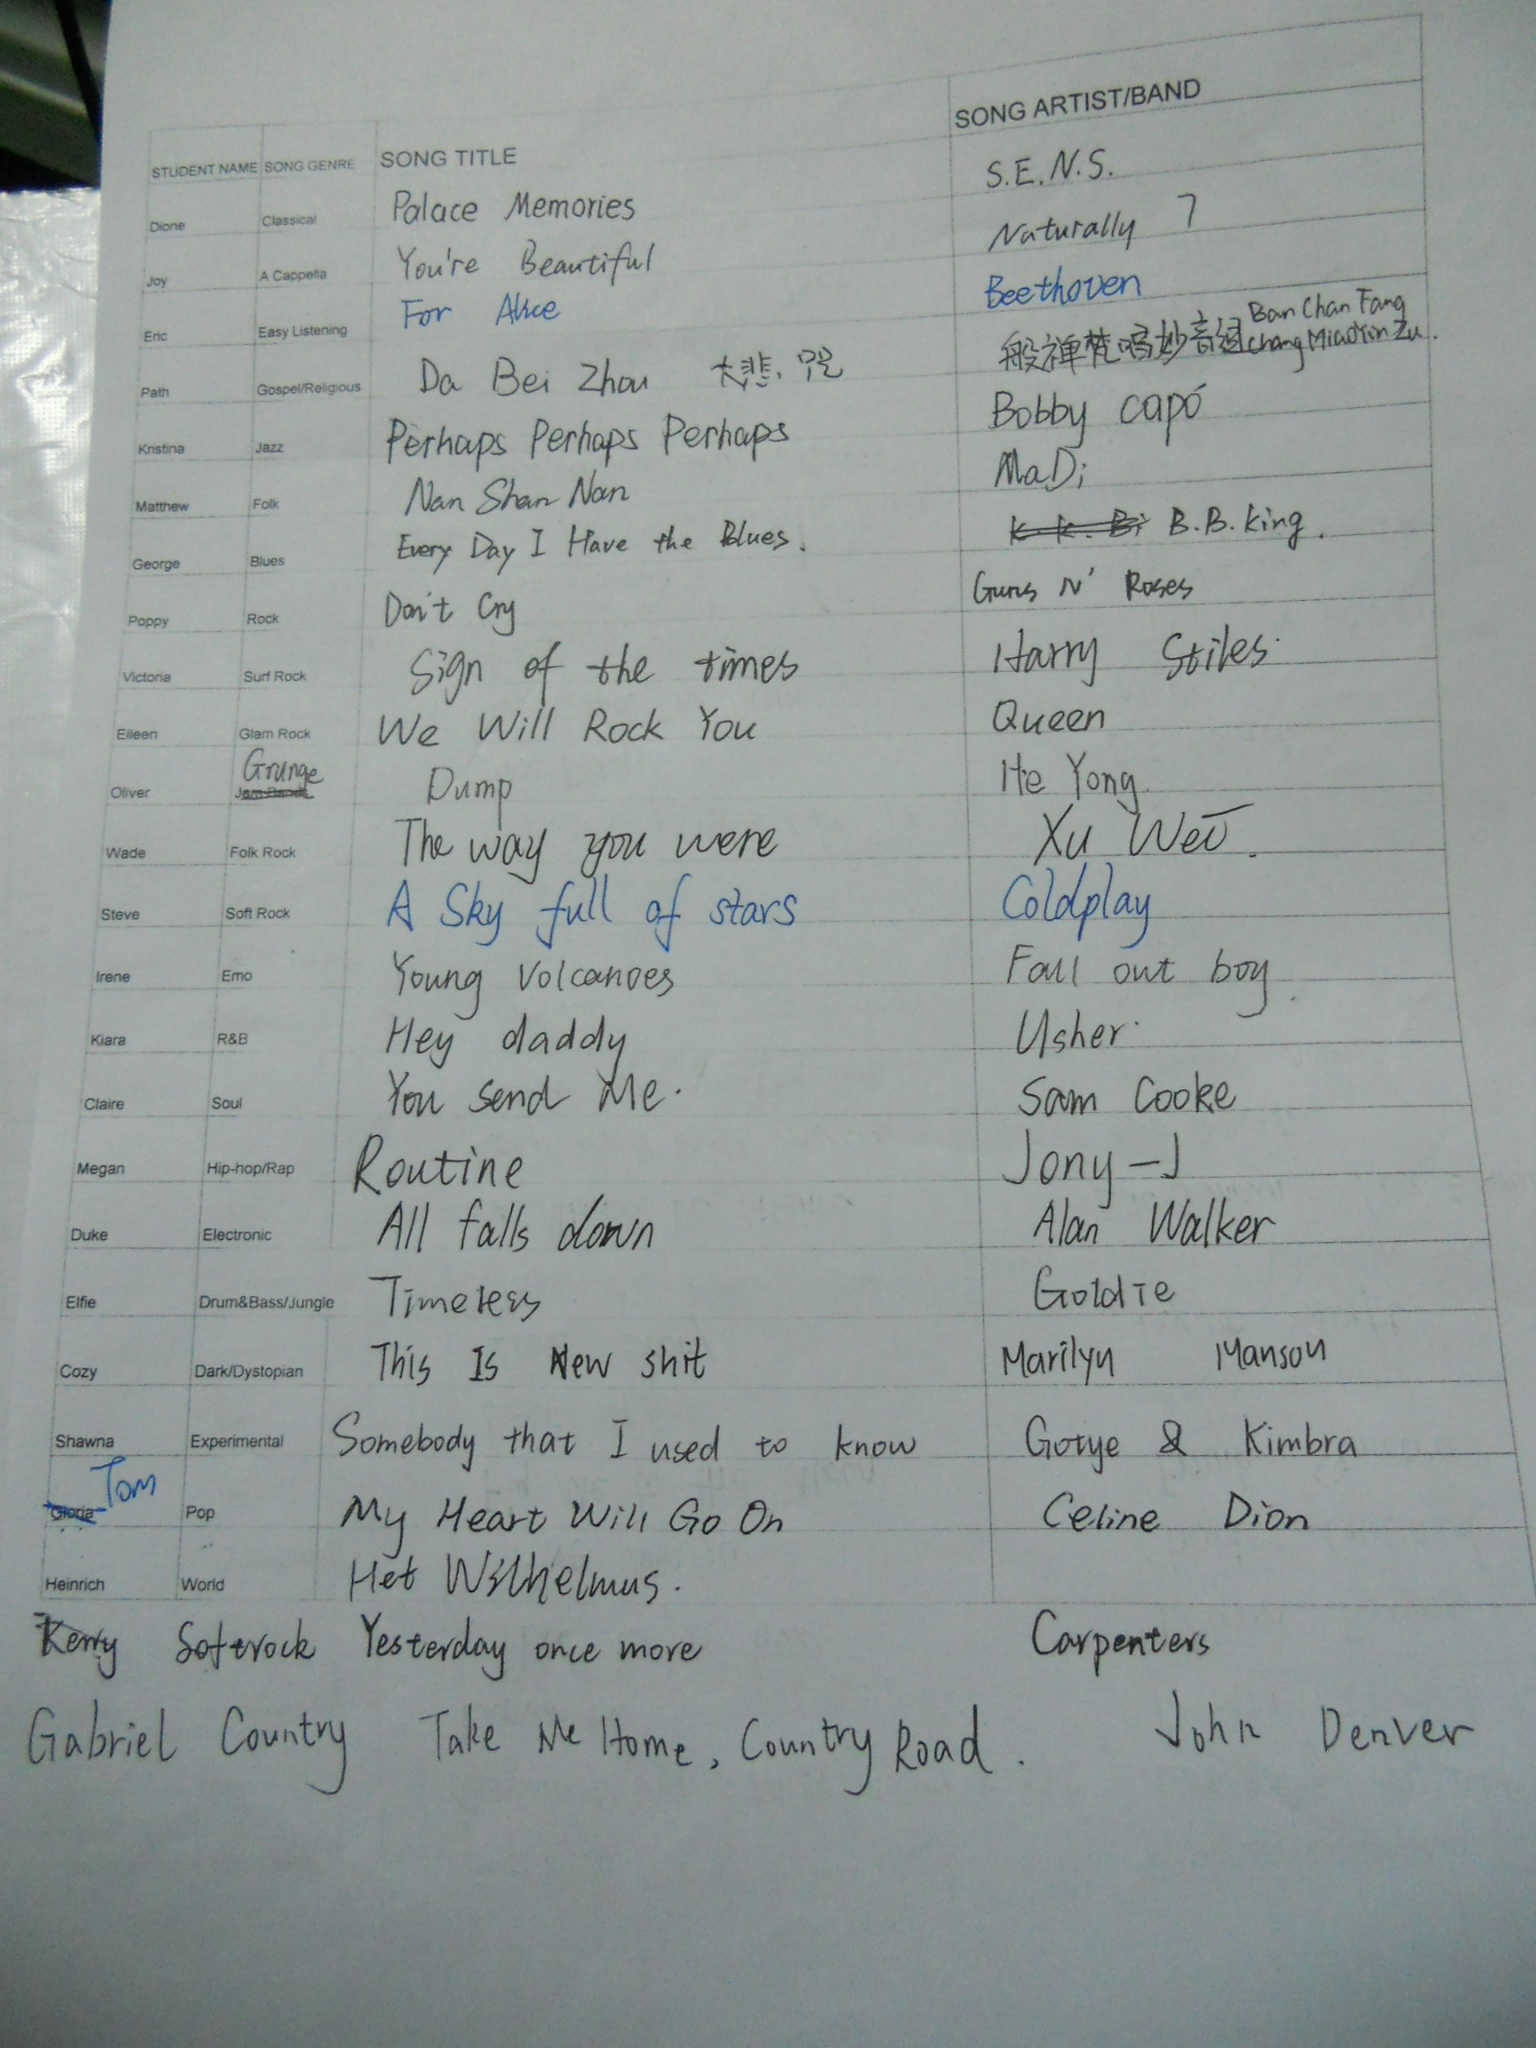 STUDENT NAME SONG GENRE SONG TITLE SONG ARTIST/BAND
Dione Classical Palace Memories S.E.N.S.
Joy A Cappella You're Beautiful Naturally 7
Eric Easy Listening For Alice Beethoven
Path Gospel/Religious Da Bei Zhou 大悲咒 般禅梵唱妙音组 Ban Chan Fang Chang MiaoYin Zu.
Kristina Jazz Perhaps Perhaps Perhaps Bobby Capó
Matthew Folk Nan Shan Nan MaDi
George Blues Every Day I Have the Blues. B.B. King.
Poppy Rock Don't Cry Guns N' Roses
Victoria Surf Rock Sign of the times Harry Stiles
Eileen Glam Rock We Will Rock You Queen
Oliver Grunge Dump He Yong
Wade Folk Rock The way you were Xu Wei.
Steve Soft Rock A Sky full of stars Coldplay
Irene Emo Young Volcanoes Fall out boy.
Kiara R&B Hey daddy Usher
Claire Soul You Send Me. Sam Cooke
Megan Hip-hop/Rap Routine Jony-J
Duke Electronic All falls down Alan Walker
Elfie Drum&Bass/Jungle Timeless Goldie
Cozy Dark/Dystopian This Is New shit Marilyn Manson
Shawna Experimental Somebody that I used to know Gotye & Kimbra
Gloria Tom Pop My Heart Will Go On Celine Dion
Heinrich World Het Wilhelmus.
Kerry Softrock Yesterday once more Carpenters
Gabriel Country Take Me Home, Country Road. John Denver